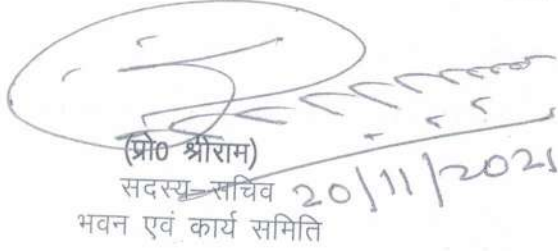 (प्रो0 श्रीराम)
सदस्य-सचिव 20/11/2021
भवन एवं कार्य समिति